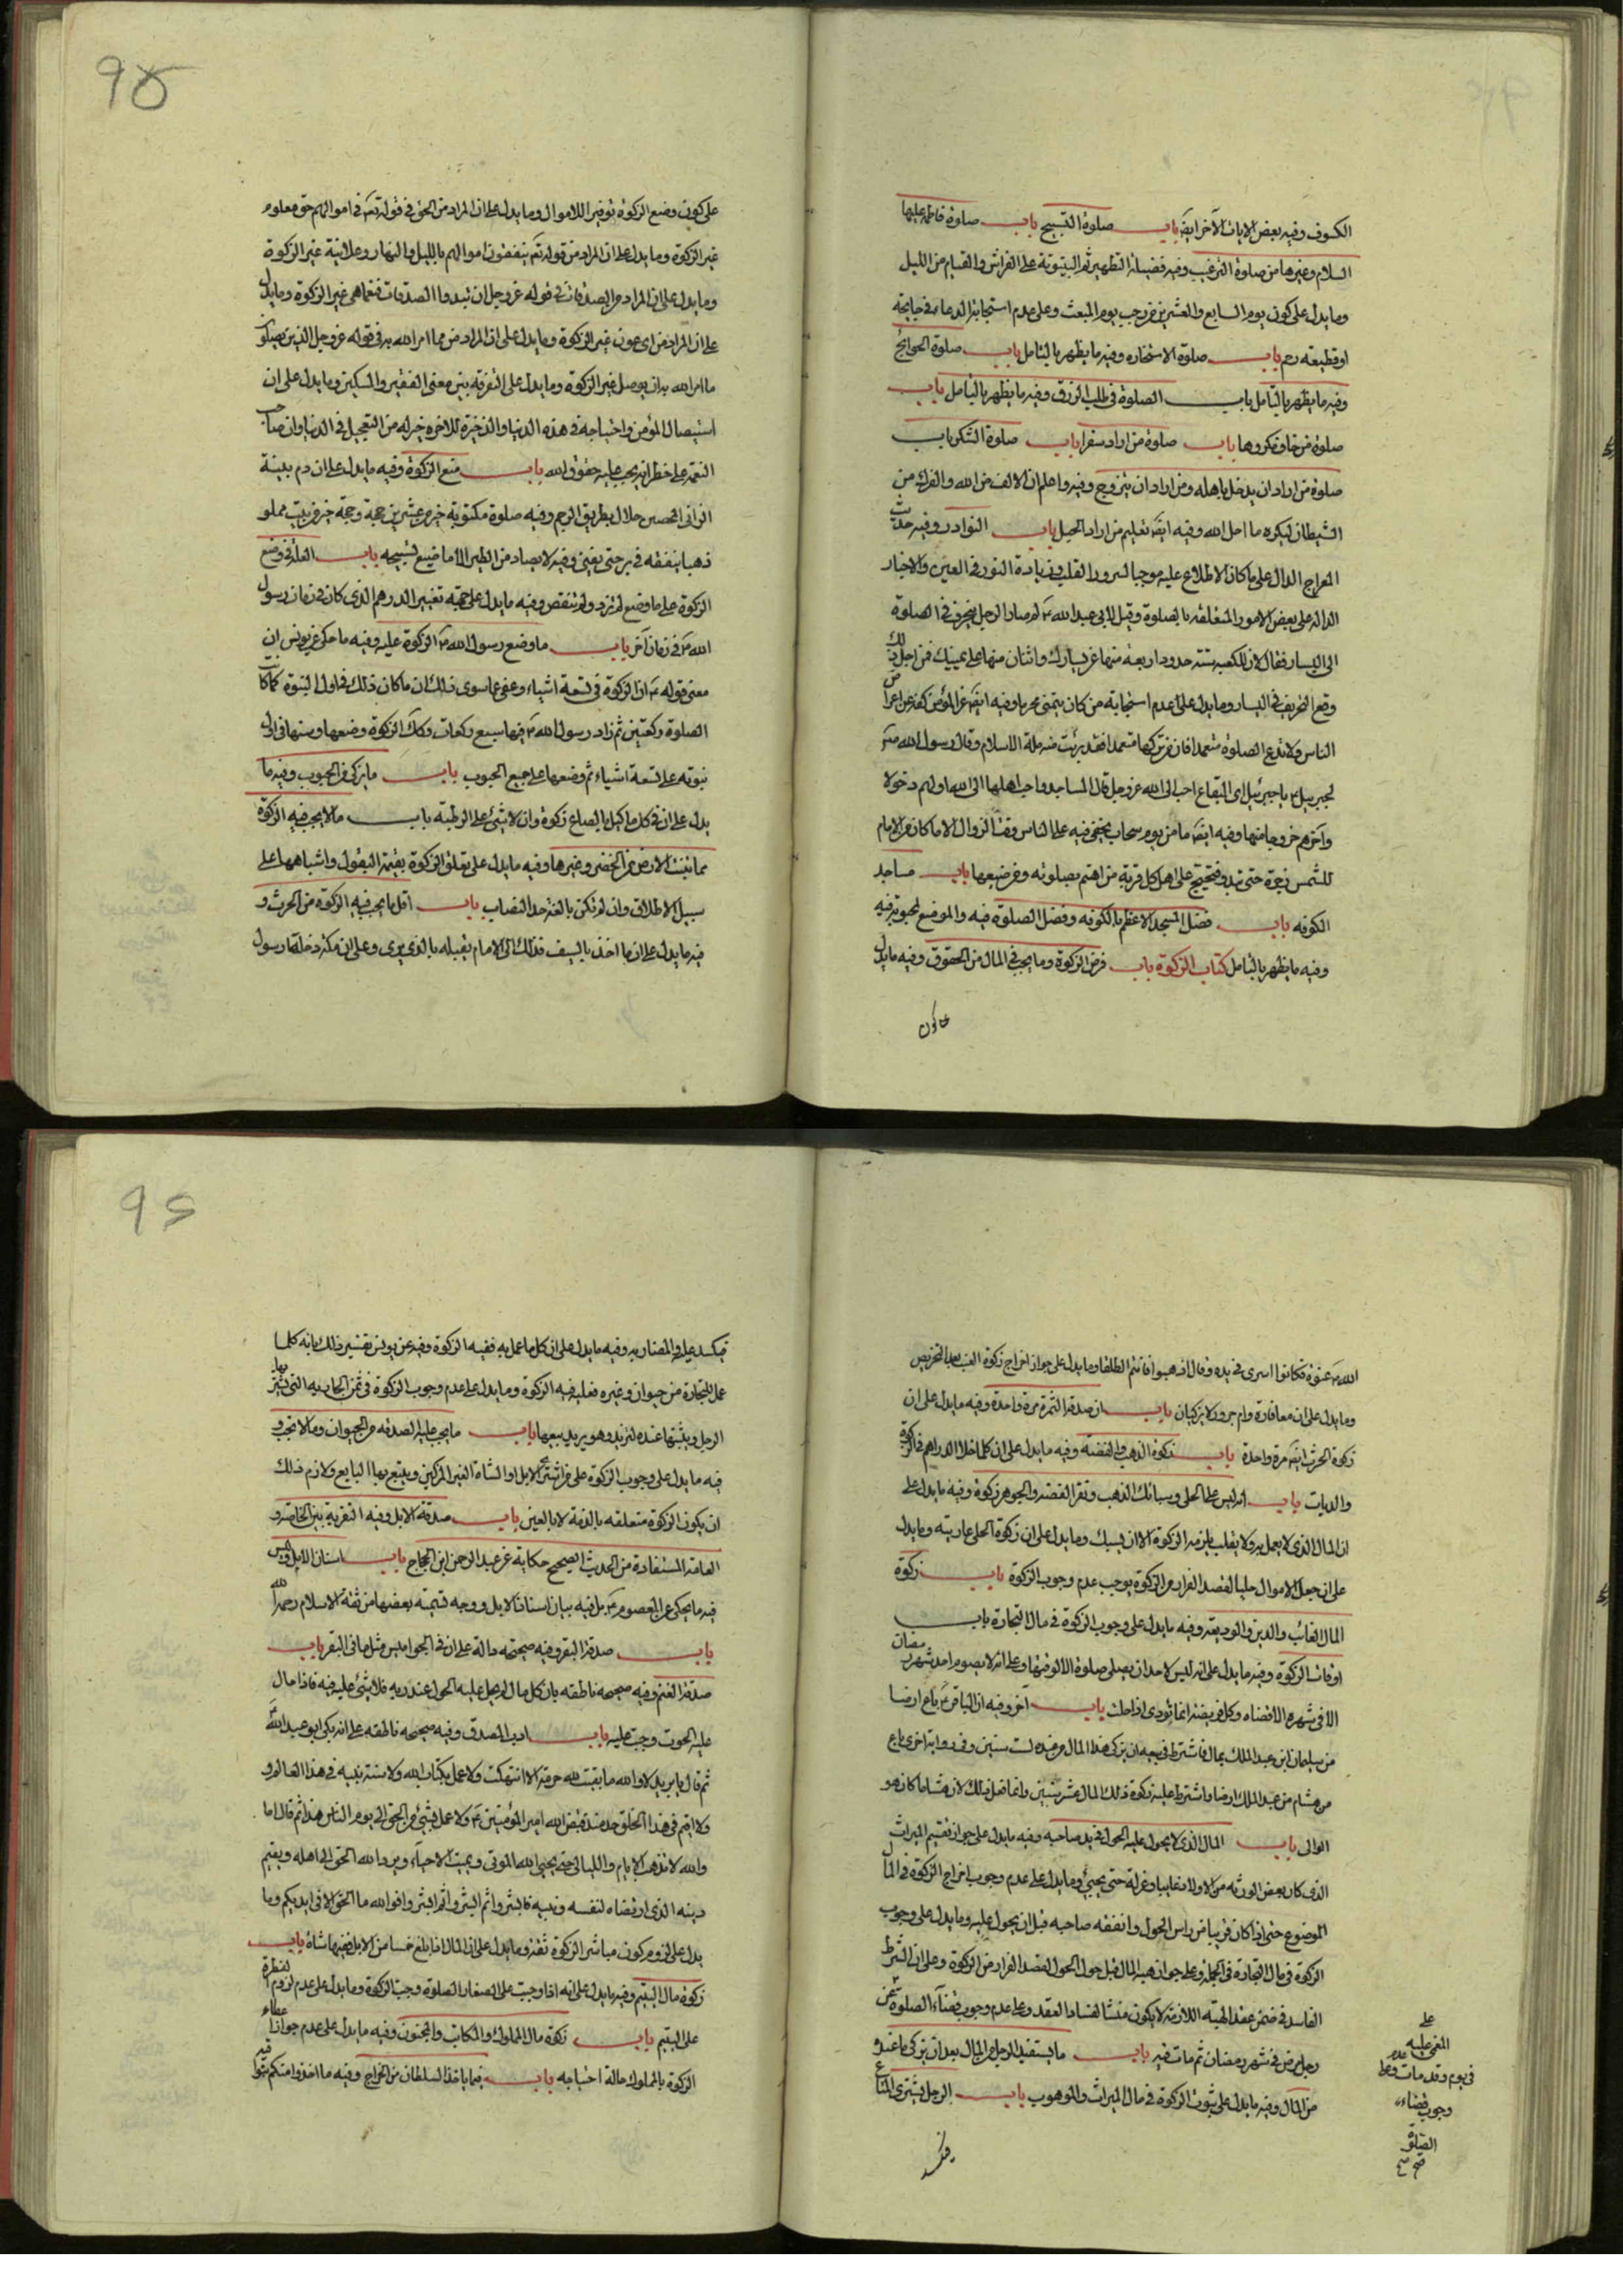 الكسوف وفيه بعض الايات الآخر ايضَ باب صلوة التسبيح باب صلوة فاطمة عليها
السلام وغيرها من صلوة الترغيب وفيه فضيلة التطهير ثم البيتوتة على الفراش والقيام من الليل
وما يدل على كون يوم السابع والعشرين من رجب يوم المبعث وعلى عدم استجابة الدعاء في جايحة
او قطيعة رحم باب صلوة الاستخارة وفيه ما يظهر بالتأمل باب صلوة الحوائج
وفيه ما يظهر بالتأمل باب الصلوة في طلب الرزق وفيه ما يظهر بالتأمل باب
صلوة من خاف مكروها باب صلوة من اراد سفرا باب صلوة الشكر باب
صلوة من اراد ان يدخل باهله ومن اراد ان يتزوج وفيه واعلم ان الالف من الله والفرك من
الشيطان ليكره ما احل الله وفيه ايضَ تعليم من اراد الحبل باب النوادر وفيه حديث
المعراج الدال على ما كان الاطلاع عليه موجبا لسرور القلب وزيادة النور في العين والاخبار
الدالة على بعض الامور المتعلقة بالصلوة وقيل لابي عبد الله ع لم صار الرجل ينحرف في الصلوة
الى اليسار فقال لان للكعبة ستة حدود اربعة منها عن يسارك واثنان منها على يمينك فمن اجل ذلك
وقع التحريف في اليسار وما يدل على عدم استجابة من كان يتمنى محرما وفيه ايضَ عز المؤمن كفه عن اعراض
الناس ولا تدع الصلوة متعمدا فان من تركها متعمدا فقد برئت منه ملة الاسلام وقال رسول الله ص
لجبرئيل ع يا جبرئيل اى البقاع احب الى الله عز وجل قال المساجد واحب اهلها الى الله اولهم دخولا
وآخرهم خروجا منها وفيه ايضَ ما من يوم سحاب يخفى فيه على الناس وقت الزوال الا ما كان من الامام
للشمس زجرة حتى تبدو فتحتج على اهل كل قرية من اهتم بصلوته ومن ضيعها باب مساجد
الكوفة باب فضل المسجد الاعظم بالكوفة وفضل الصلوة فيه والموضع المحبوبة فيه
وفيه ما يظهر بالتأمل كتاب الزكوة باب فرض الزكوة وما يجب في المال من الحقوق وفيه ما يدل
على كون
على كون وضع الزكوة توفيرا للاموال وما يدل على ان المراد من الحق في قوله تعَ في اموالهم حق معلوم
غير الزكوة وما يدل على ان المراد من قوله تعَ ينفقون اموالهم بالليل والنهار وعلانية غير الزكوة
وما يدل على ان المراد من الصدقات في قوله عز وجل ان تبدوا الصدقات فنعما هى غير الزكوة وما يدل
على ان المراد من الماعون غير الزكوة وما يدل على ان المراد من مما امر الله به في قوله عز وجل الذين يصلون
ما امر الله به ان يوصل غير الزكوة وما يدل على التفرقة بين معنى الفقير والمسكين وما يدل على ان
استيصال المؤمن واحتياجه في هذه الدنيا والذخيرة للاخرة خير له من التعجيل في الدنيا وان صاحب
النعمة على خطر انه يجب عليه حقوق الله باب منع الزكوة وفيه ما يدل على ان دم
الزانى المحصن حلال بطريق الرجم وفيه صلوة مكتوبة خير من عشرين حجة وحجة خير من بيت مملو
ذهبا ينفقه في بر حتى يفنى وفيه لا يصاد من الطير الا ما ضيع تسبيحه باب العلة في وضع
الزكوة على ما وضع لم تزد ولم تنقص وفيه ما يدل على جهة تغيير الدرهم الذى كان في زمان رسول
الله ص في زمان آخر باب ما وضع رسول الله ص الزكوة عليه وفيه ما حكى عن يونس ان
معنى قوله ع ان الزكوة في تسعة اشياء وعفى عما سوى ذلك ان ما كان ذلك في اول النبوة كما كانت
الصلوة ركعتين ثم زاد رسول الله ص فيها سبع ركعات وكذلك الزكوة وضعها وسنها في اول
نبوته على تسعة اشياء ثم وضعها على جميع الحبوب باب ما يزكى من الحبوب وفيه ما
يدل على ان في كل ما كيل بالصاع زكوة وان لا شئ على الرطبة باب ما لا يجب فيه الزكوة
مما تنبت الارض من الخضر وغيرها وفيه ما يدل على تعلق الزكوة بقيمة البقول واشباهها على
سبيل الاطلاق وان لم تكن بالغة حد النصاب باب اقل ما يجب فيه الزكوة من الحرث و
فيه ما يدل على ان ما اخذ بالسيف فذلك الى الامام يقبله بالذى يرى وعلى ان مكة دخلها رسول
الله ص عنوة فكانوا اسرى في يده وقال اذهبوا فانتم الطلقا وما يدل على جواز اخراج زكوة العنب بعد التخريص
وما يدل على ان معافارة وام جرور لا يزكيان باب ان صدقة الثمرة مرة واحدة وفيه ما يدل على ان
زكوة الحرث ايضَ مرة واحدة باب زكوة الذهب والفضة وفيه ما يدل على ان كلما خلا الدراهم في الزكوة
والديات باب انه ليس على الحلى وسبائك الذهب ونقر الفضة والجوهر زكوة وفيه ما يدل على
ان المال الذى لا يعمل به ولا يقلب يلزمه الزكوة الا ان يسبك وما يدل على ان زكوة الحلى عاريته وما يدل
على ان جعل الاموال حليا لقصد الفرار من الزكوة يوجب عدم وجوب الزكوة باب زكوة
المال الغائب والدين والوديعة وفيه ما يدل على وجوب الزكوة في مال التجارة باب
اوقات الزكوة وفيه ما يدل على انه ليس لاحد ان يصلى صلوة الا لوقتها وعلى انه لا يصوم احد شهر رمضان
الا في شهره الا قضاء وكل فريضة انما تؤدى اذا حلت باب آخر وفيه ان الباقر ع باع ارضا
من سليمان ابن عبد الملك بمال فاشترط في بيعه ان يزكى هذا المال من عنده لست سنين وفى رواية اخرى باع
من هشام بن عبد الملك ارضا واشترط عليه زكوة ذلك المال عشر سنين وانما فعل ذلك لان هشاما كان هو
الوالى باب المال الذى لا يحول عليه الحول في يد صاحبه وفيه ما يدل على جواز تقسيم الميراث
الذى كان بعض الورثة من الاولاد غايبا وعزله حتى يجيئ وما يدل على عدم وجوب اخراج الزكوة في المال
الموضوع حتى اذا كان قريبا من راس الحول وانفقه صاحبه قبل ان يحول عليه وما يدل على وجوب
الزكوة في مال التجارة في الجملة وعلى جواز هبة المال قبل حول الحول لقصد الفرار من الزكوة وعلى ان الشرط
الفاسد في ضمن عقد الهبة اللازمة لا يكون منشأ لفساد العقد وعلى عدم وجوب قضاء الصلوة عن
رجل مرض في شهر رمضان ثم مات فيه باب ما يستفيد الرجل من المال بعد ان يزكى ما عنده
من المال وفيه ما يدل على ثبوت الزكوة في مال الميراث والموهوب باب الرجل يشترى المتاع
على
المغمى عليه
في يوم وقد مات
وجوب قضاء
الصلوة
صح
فيكسد عليه والمضاربة وفيه ما يدل على ان كل ما عمل به ففيه الزكوة وفيه عن يونس تفسير ذلك بانه كلما
عمل للتجارة من حيوان وغيره فعليه فيه الزكوة وما يدل على عدم وجوب الزكوة في ثمن الجارية التى
الرجل ويثبتها عنده لتزيد وهو يريد بيعها باب ما يجب عليه الصدقة من الحيوان وما لا تجب و
فيه ما يدل على وجوب الزكوة على من اشترى الابل او الشاة الغير المزكين ويتبع بها البايع ولازم ذلك
ان يكون الزكوة متعلقة بالذمة لا بالعين باب صدقة الابل وفيه التفرقة بين الخاصة و
العامة المستفادة من الحديث الصحيح حكاية عن عبد الرحمن ابن الحجاج باب اسنان الابل وليس
فيه ما يحكى عن المعصوم ع بل فيه بيان اسنان الابل ووجه تسمية بعضها من ثقة الاسلام رحمه الله
باب صدقة البقر وفيه صحيحة دالة على ان في الجواميس مثل ما في البقر باب
صدقة الغنم وفيه صحيحة ناطقة بان كل مال لم يحل عليه الحول عند ربه فلا شئ عليه فيه فاذا حال
عليه الحول وجب عليه باب ادب المصدق وفيه صحيحة ناطقة على انه بكى ابو عبد الله ع
ثم قال يا بريد لا والله ما بقيت لله حرمة الا انتهكت ولا عمل بكتاب الله ولا سنة نبيه في هذا العالم و
لا اقيم في هذا الخلق حد منذ قبض الله امير المؤمنين ع ولا عمل بشئ من الحق الى يوم الناس هذا ثم قال اما
والله لا تذهب الايام والليالى حتى يحيى الله الموتى ويميت الاحياء ويرد الله الحق الى اهله ويقيم
دينه الذى ارتضاه لنفسه ونبيه فابشروا ثم ابشروا ثم ابشروا فوالله ما الحق الا في ايديكم وما
يدل على لزوم كون مباشر الزكوة ثقة وما يدل على ان المال اذا بلغ خمسا من الابل ففيها شاة باب
زكوة مال اليتيم وفيه ما يدل على انه اذا وجبت على الصغار الصلوة وجبت الزكوة وما يدل على عدم لزوم الفطرة
على اليتيم باب زكوة مال المملوك والمكاتب والمجنون وفيه ما يدل على عدم جواز اعطاء
الزكوة بالمملوك حالة احتياجه باب فيما ياخذ السلطان من الخراج وفيه ما اخذوا منكم